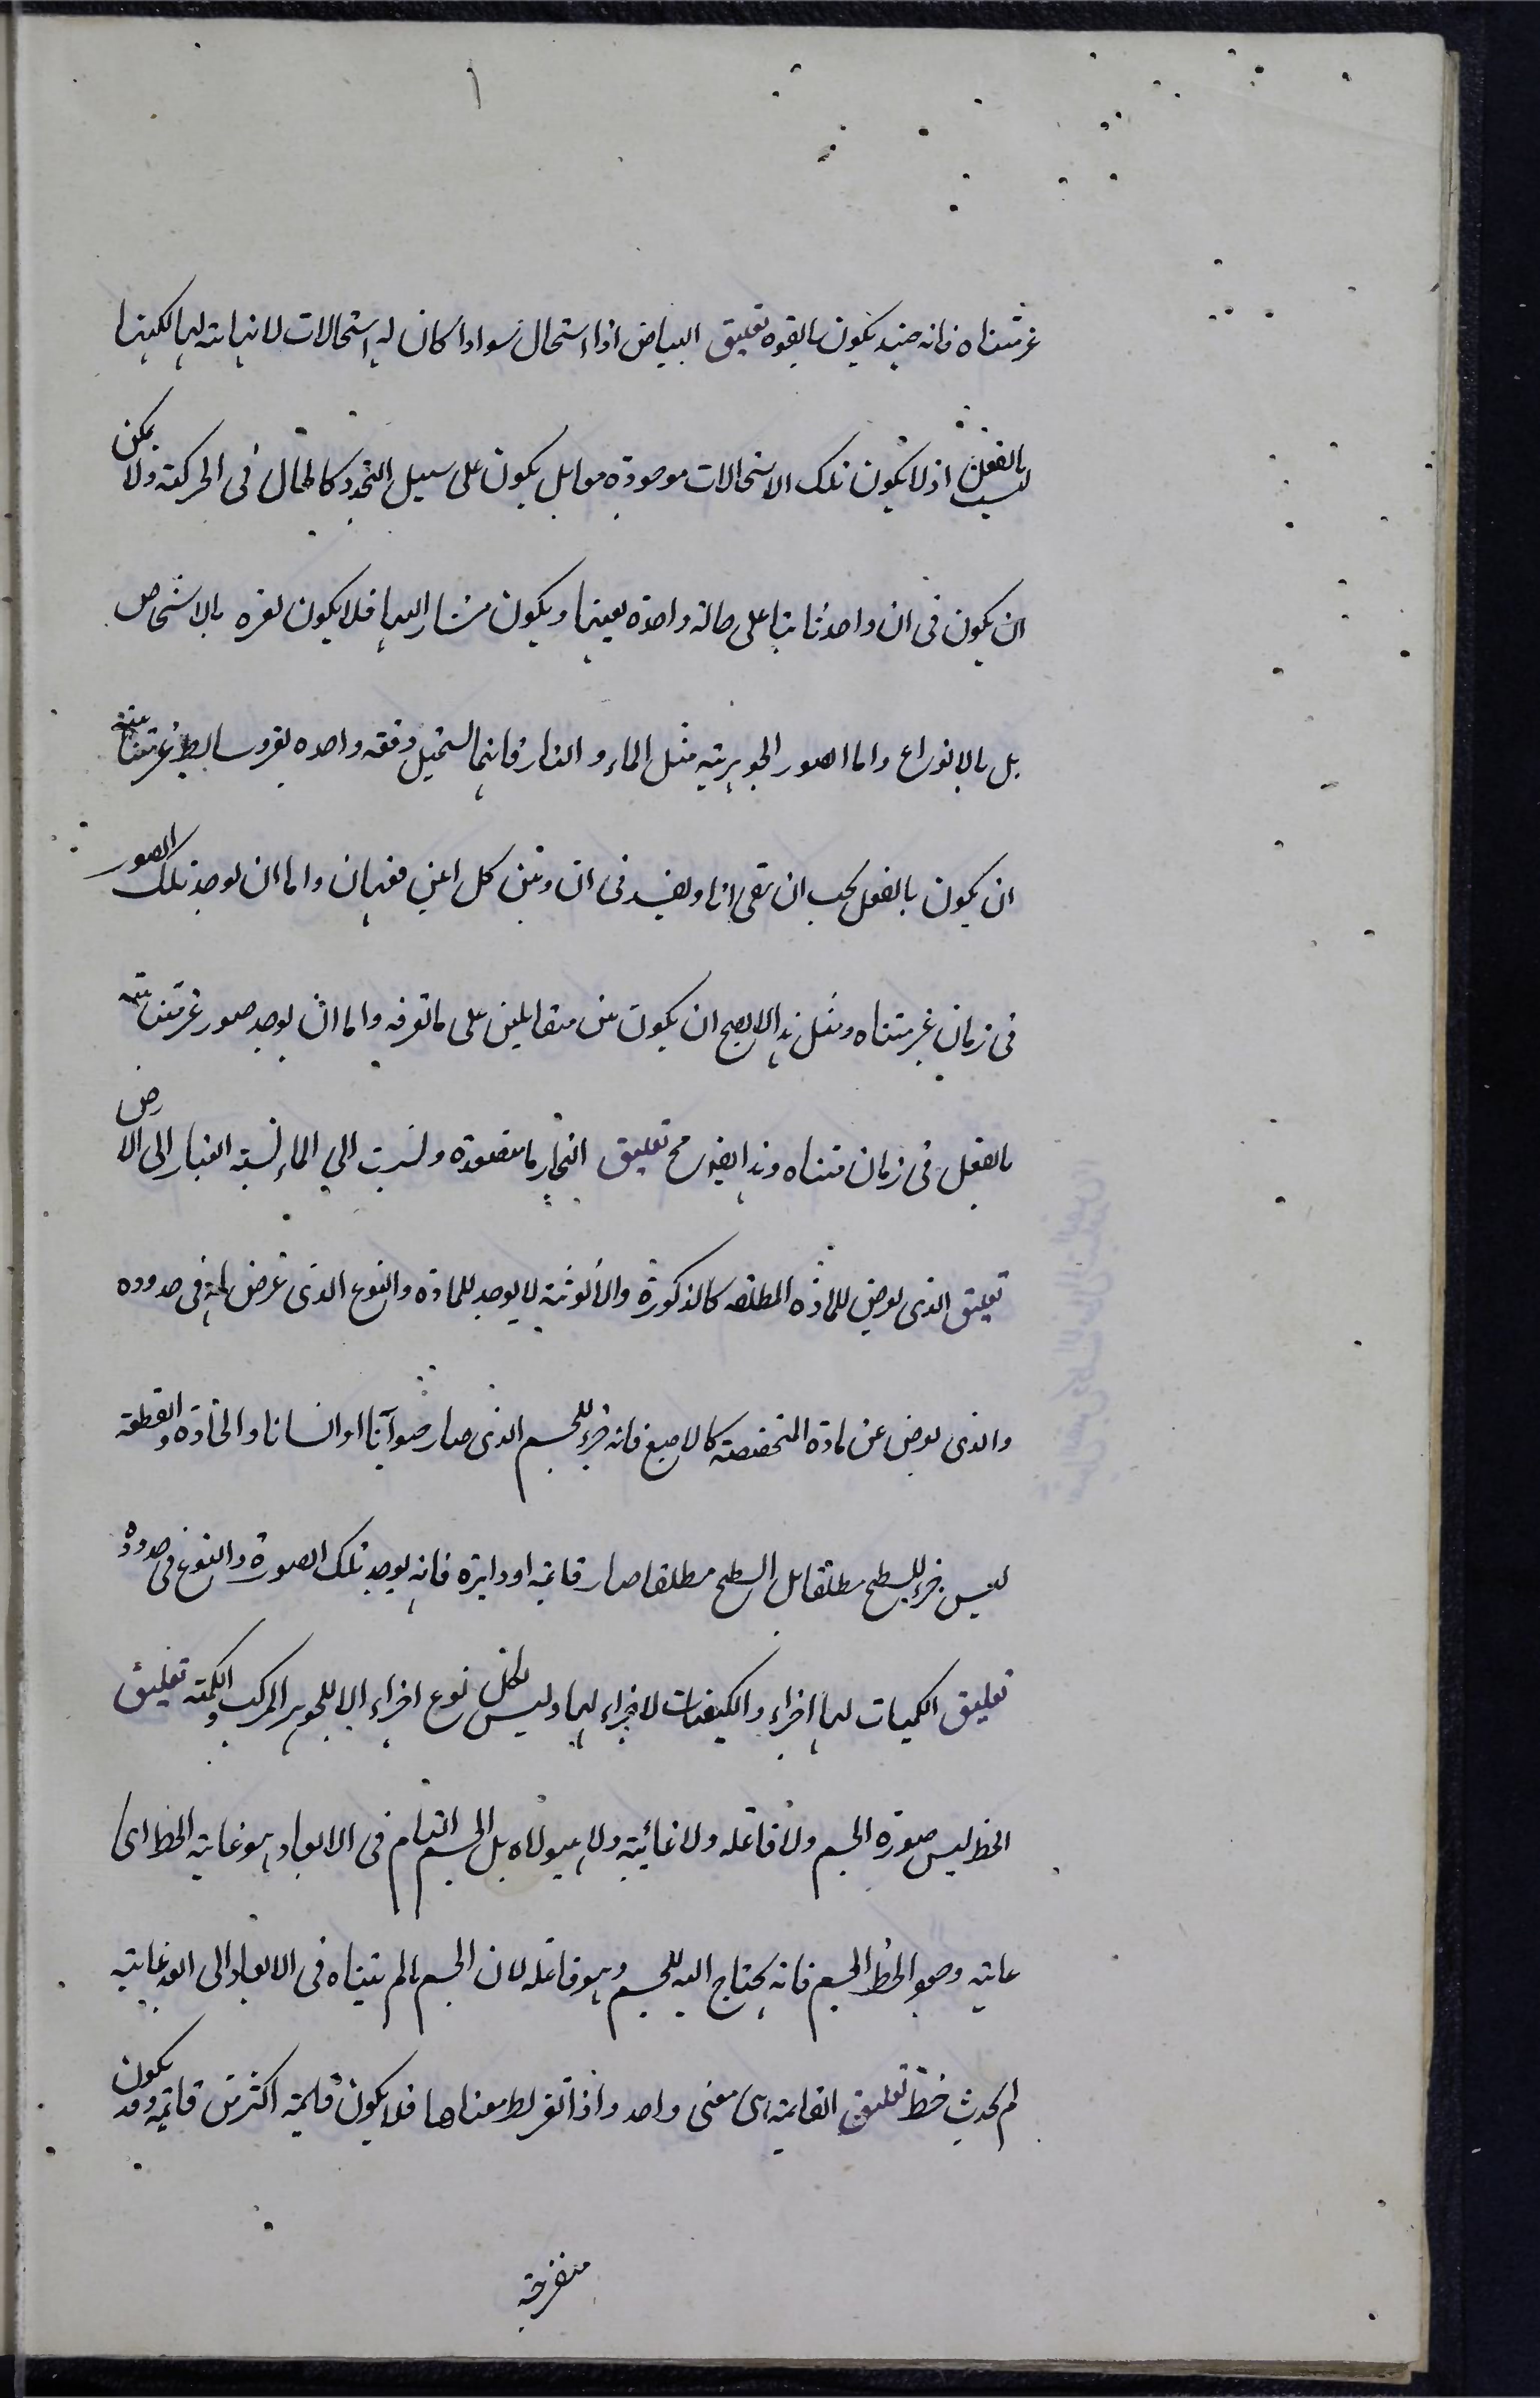 ١
غير متناه فانه حينئذ يكون بالقوه تعليق البياض اذا استحال سوادا كان له استحالات لا نهاية لها لكنها
ليست بالفعل اذ لا يكون تلك الاستحالات موجودة معا بل يكون على سبيل التجدد كالحال فى الحركة ولا يمكن
ان يكون فى ان واحد ثابتا على حالة واحدة بعينها ويكون مشار اليها فلا يكون لغيره بالاشخاص
بل بالانواع واما الصور الجوهرية مثل الماء والنار فانهما يستحيل دفعة واحده بغير وسايط غير متناهية
ان يكون بالفعل يجب ان يبقى انا ويفسد فى ان وبين كل اعنى فهما ان واما ان يوجد تلك الصور
فى زمان غير متناه ومثل هذا لا يصح ان يكون بين متقابلين على ما تعرفه واما ان يوجد صور غير متناهية
بالفعل فى زمان متناه وهذا ايضا مح تعليق البخار ما متصعدة ونسبت الى الماء نسبة الغبار الى الارض
تعليق الذى يعرض للمادة المطلقه كالذكورة والانوثة لا يوجد للمادة والنوع الذى تعرض له فى حدوده
والذى يعرض عن مادة المتخصصة كالاصبع فانه جزء للجسم الذى صار حيوانا او انسانا والحادة والقطعة
ليس جزء للسطح مطلقا بل السطح مطلقا صار قائمة او دايرة فانه يوجد تلك الصورة والنوع فى حدوده
تعليق الكميات لها اجزاء والكيفيات لا اجزاء لها وليس لكل نوع اجزاء الا للجوهر المركب والكمية تعليق
الخط ليس صورة الجسم ولا فاعله ولا غائيته ولا هيولاه بل الجسم التام فى الابعاد هو غاية الخط اى
غايته وهو الخط الجسم فانه يحتاج اليه للجسم وهو فاعله لان الجسم ما لم يتناه فى الابعاد الى ابعد غايته
لم يحدث خط تعليق القايمة هى معنى واحد واذا تفرط معناها فلا يكون قايمة اكثر من قايمة وقد يكون
منفرجة